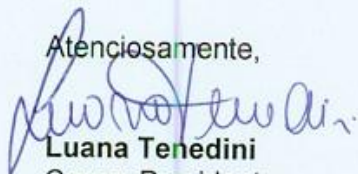 Atenciosamente,
Luana Tenedini